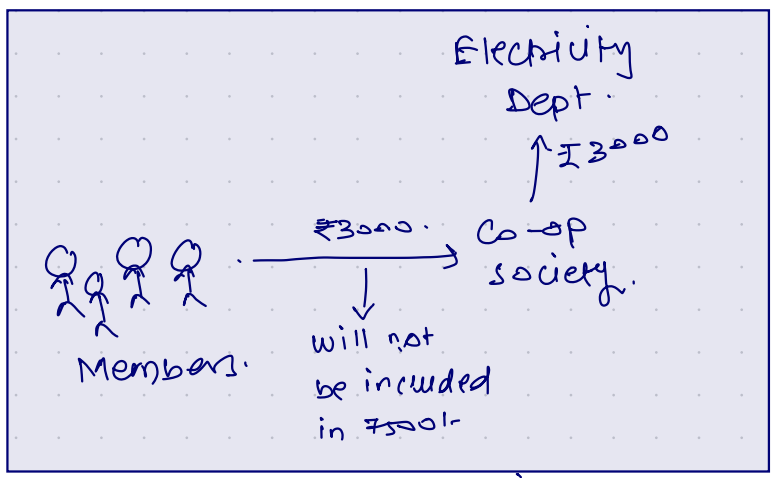 Electricity
Dept.
₹3000
₹3000.
Co-op
society.
Members.
will not
be included
in 7500/-